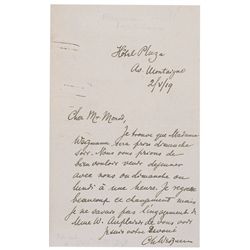 Hôtel Plaza
Av. Montaigne
2/V/19
Cher Mr
Je trouve que Madame
sera prise dimanche
soir. Nous vous prions de
bien vouloir venir déjeuner
avec nous ou dimanche ou
lundi à une heure. Je regrette
beaucoup ce changement mais
je ne savais pas l'engagement de
Mme W. de vous voir
votre dévoué